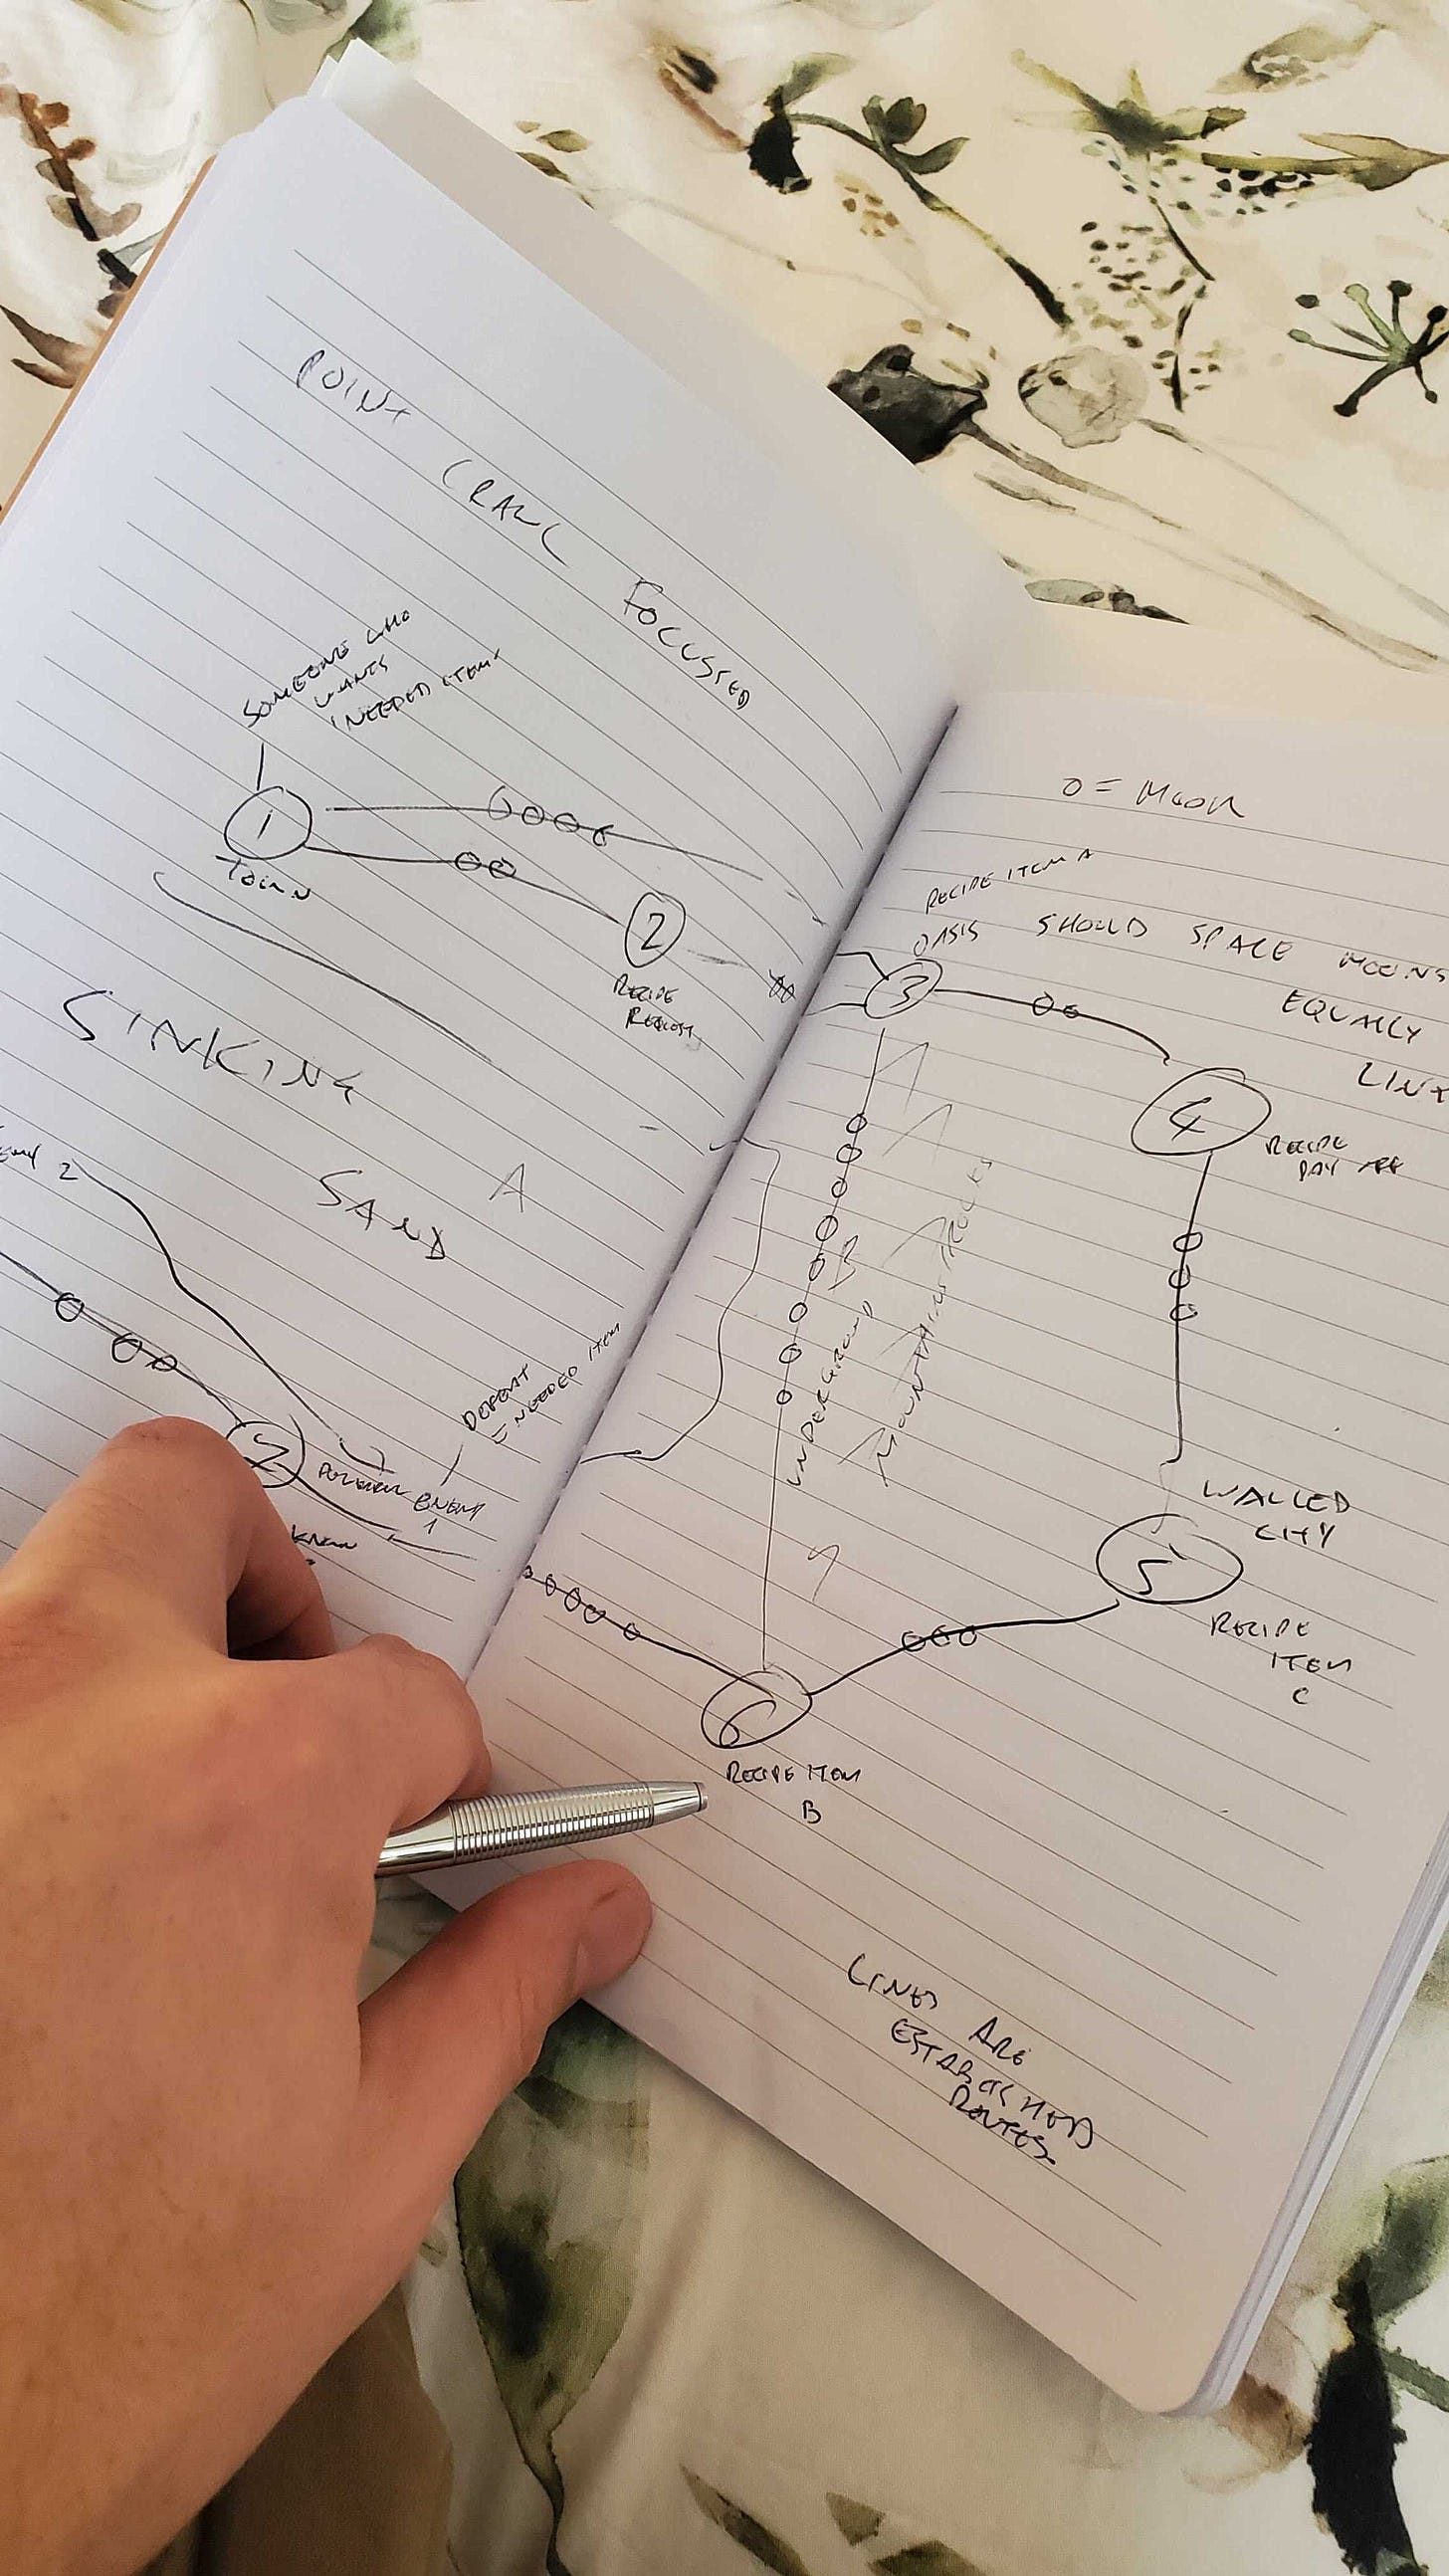 POINT CRAWL FOCUSSED
SOMEONE WHO
WANTS
NEEDED ITEM
1
TOWN
2
RECIPE
REQUEST
SINKING
SAND
A
2
7
POWERFUL ENEMY
1
KNOW
DEFEAT
NEEDED ITEM
O = MOON
RECIPE ITEM A
OASIS
SHOULD SPACE MOONS
EQUALLY
3
4
RECIPE
PAY OFF
UNDERGROUND B
MOUNTAINS
WALLED
CITY
5
RECIPE
ITEM
C
6
RECIPE ITEM
B
LINES ARE
ESTABLISHED
ROUTES